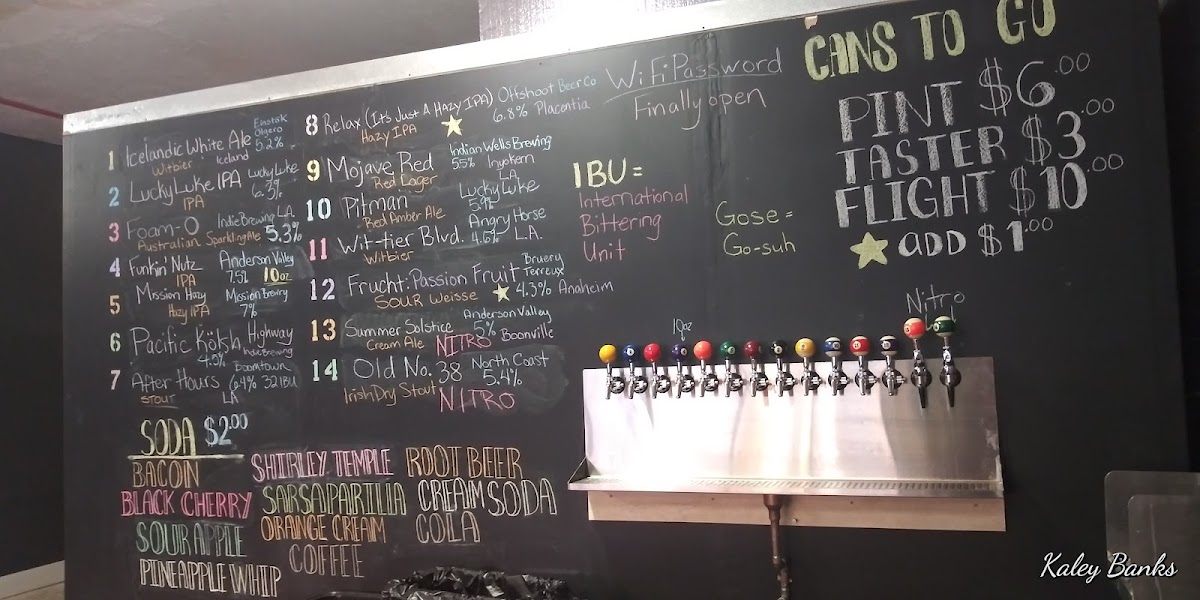 1 Icelandic White Ale Einstok Olgero
Witbier Iceland 5.2%
2 Lucky Luke IPA Lucky Luke
IPA
3 Foam-O Indie Brewing LA
Australian Sparkling Ale 5.3%
4 Funkin' Nutz Anderson Valley
IPA 7.5% 10oz
5 Mission Hazy Mission Brewry
Hazy IPA 7%
6 Pacific Kölsh Highway
4.5% Indie Brewing
7 After Hours Boomtown
6.4% 32 IBU
STOUT LA
8 Relax (It's Just A Hazy IPA) Offshoot Beer Co
Hazy IPA 6.8% Placentia
9 Mojave Red Indian Wells Brewing
Red Lager 55% Inyokern
10 Pitman Lucky Luke LA
Red Amber Ale 5.9%
11 Wit-tier Blvd. Angry Horse
Witbier 4.6% L.A.
12 Frucht: Passion Fruit Bruery Terreux
Sour Weisse 4.3% Anaheim
13 Summer Solstice Anderson Valley
Cream Ale NITRO 5% Boonville
14 Old No. 38 North Coast
Irish Dry Stout 5.4%
NITRO
WiFi Password
Finally open
IBU =
International
Bittering
Unit
Gose =
Go-suh
CANS TO GO
PINT $6.00
TASTER $3.00
FLIGHT $10.00
ADD $1.00
10oz
Nitro
SODA $2.00
BACOIN
BLACK CHERRY
SOUR APPLE
PINEAPPLE WHIP
SHIRLEY TEMPLE
SARSAPARILIA
ORANGE CREAM
COFFEE
ROOT BEER
CREAM SODA
COLA
Kaley Banks